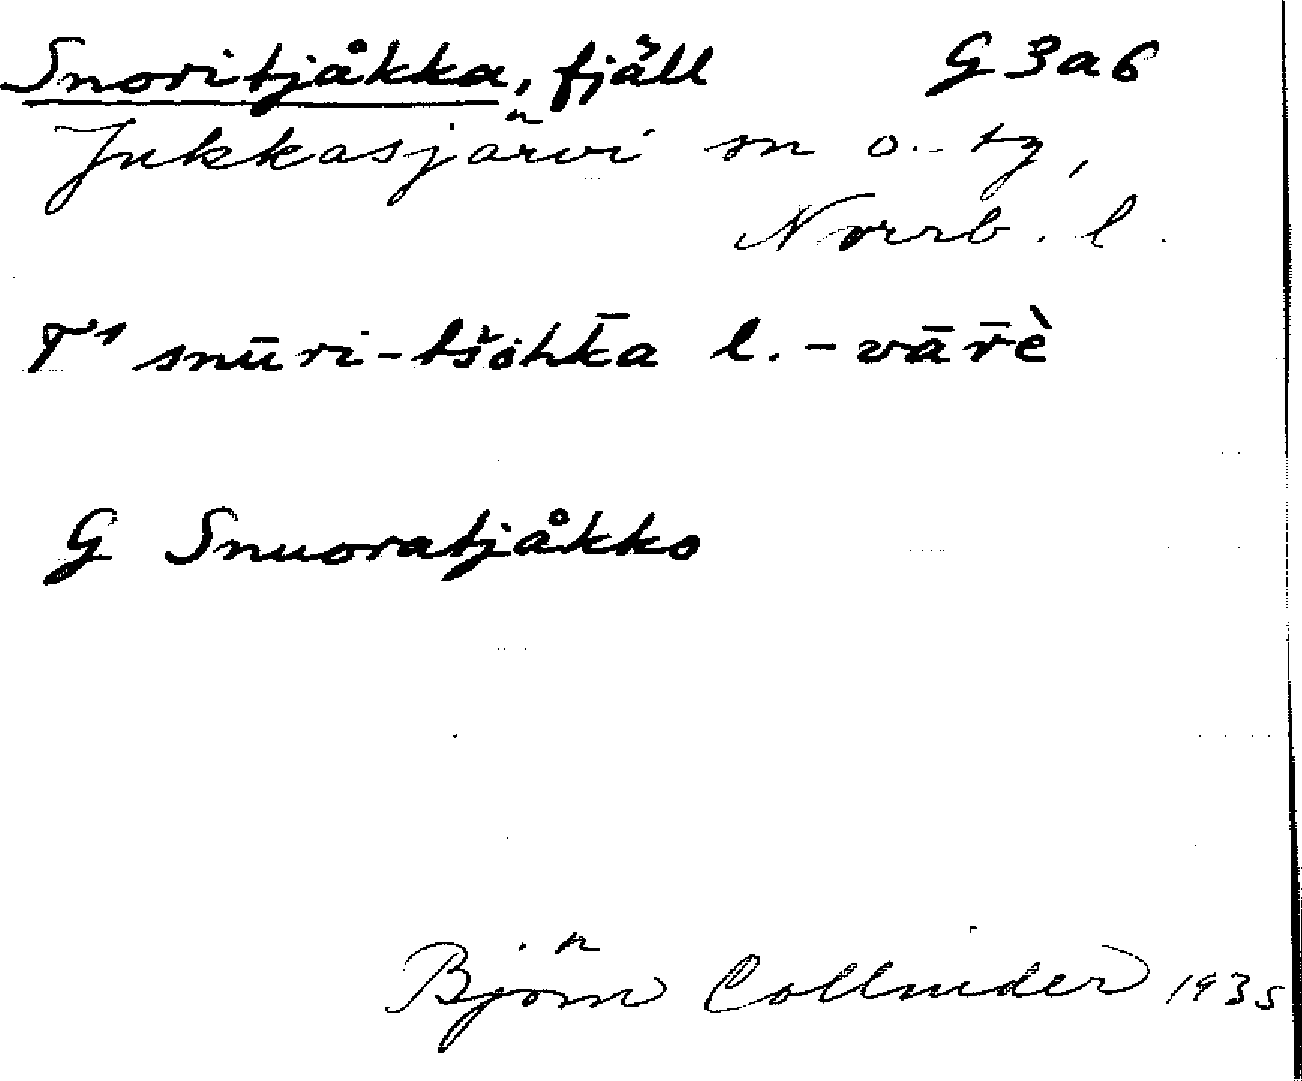 Snoritjåkka, fjäll G 3 a 6
Jukkasjärvi sn o. tg,
Norrb. l.
T¹ snūri-tšoh̄ka l. -vār̄è
G Snuoratjåkko
Björn Collinder 1935